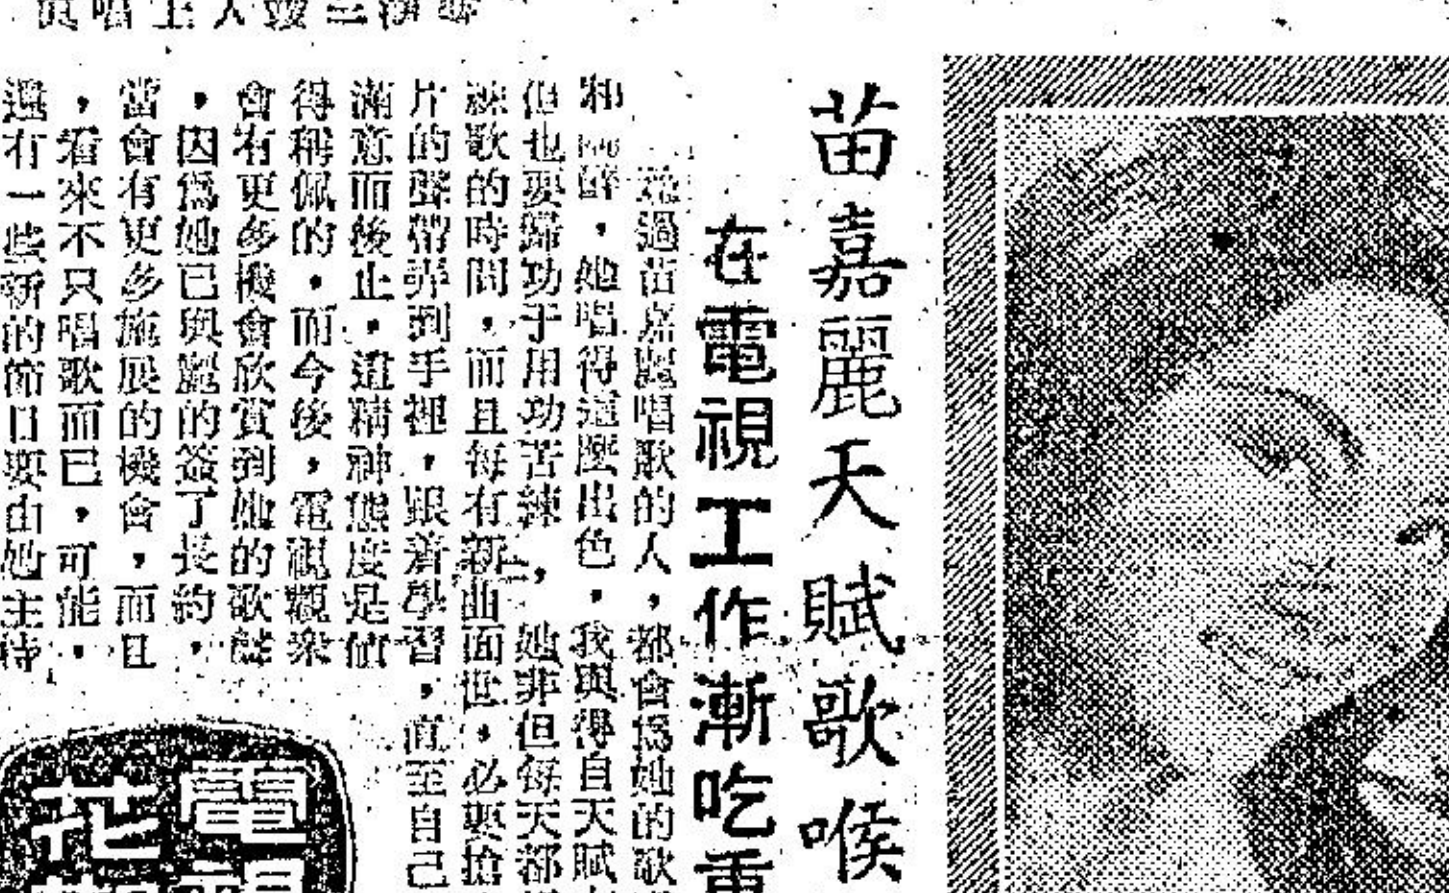 苗嘉麗天賦歌喉
在電視工作漸吃重
過苗嘉麗唱歌的人，都會為她的歌
和，她唱得這麼出色，我與得自天賦
但也要歸功于用功苦練，她非但每天都
練歌的時間，而且每有新曲面世，必要搶
片的聲帶弄到手裡，跟着學習，直至自己
滿意而後止，這精神態度是值
得稱佩的，而今後，電視觀衆
會有更多機會欣賞到她的歌聲
，因爲她已與麗的簽了長約，
當會有更多施展的機會，而且
，看來不只唱歌而已，可能，
還有一些新的節目要由她主持
電視
花